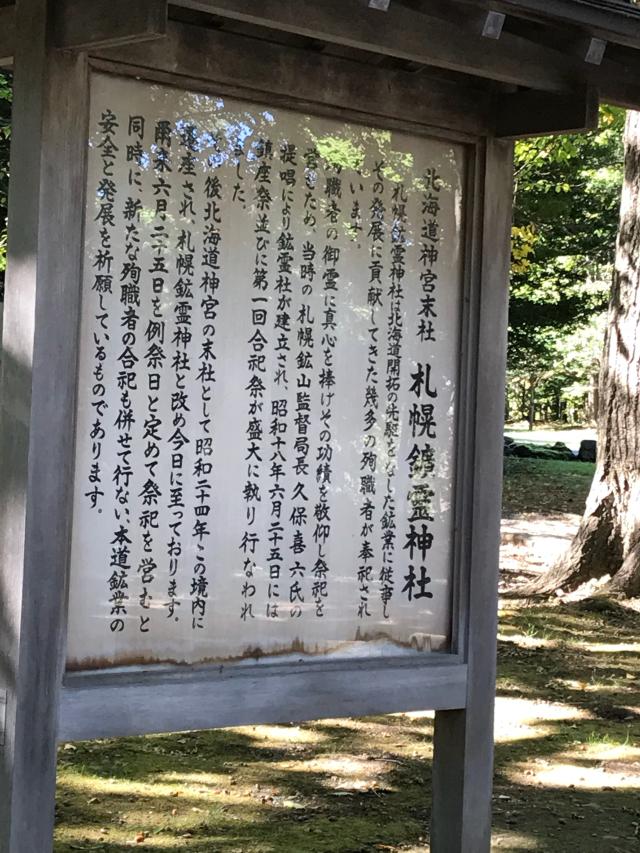 北海道神宮末社 札幌鉱霊神社
札幌鉱霊神社は北海道開拓の先駆をなした鉱業に従事し
その発展に貢献してきた幾多の殉職者が奉祀され
います。
職者の御霊に真心を捧げその功績を敬仰し祭祀を
営むため、当時の札幌鉱山監督局長久保喜六氏の
提唱により鉱霊社が建立され、昭和十八年六月二十五日には
鎮座祭並びに第一回合祀祭が盛大に執り行なわれ
した。
その後北海道神宮の末社として昭和二十四年この境内に
遷座され、札幌鉱霊神社と改め今日に至っております。
爾来六月二十五日を例祭日と定めて祭祀を営むと
同時に、新たな殉職者の合祀も併せて行ない、本道鉱業の
安全と発展を祈願しているものであります。